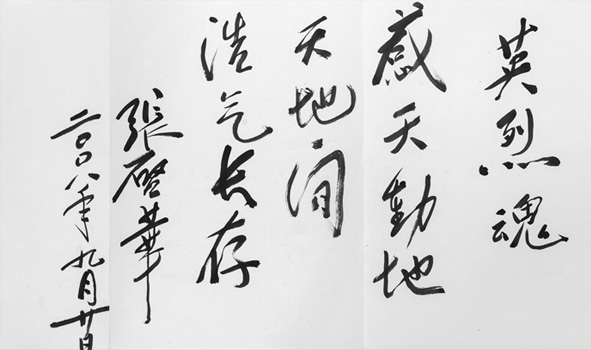 英烈魂
感天動地
天地间
浩气长存
張啓華
二〇〇八年九月廿日